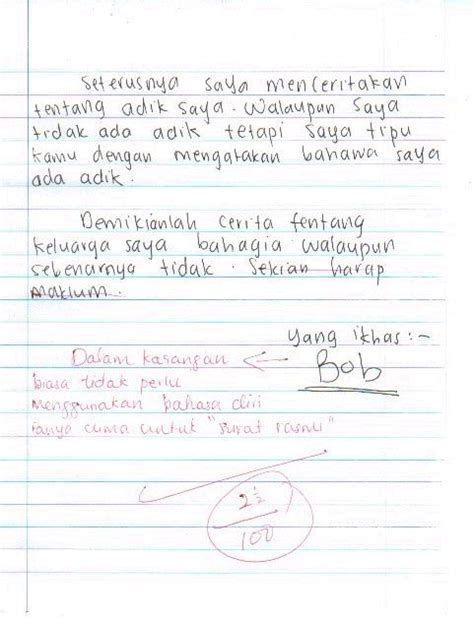 Seterusnya saya menceritakan
tentang adik saya. Walaupun saya
tidak ada adik tetapi saya tipu
kamu dengan mengatakan bahawa saya
ada adik.
Demikianlah cerita tentang
keluarga saya bahagia walaupun
sebenarnya tidak. Sekian harap
maklum.
Yang ikhas :-
Bob
Dalam karangan
biasa tidak perlu
menggunakan bahasa diri
ianya cuma untuk "surat rasmi"
2 1/2
100